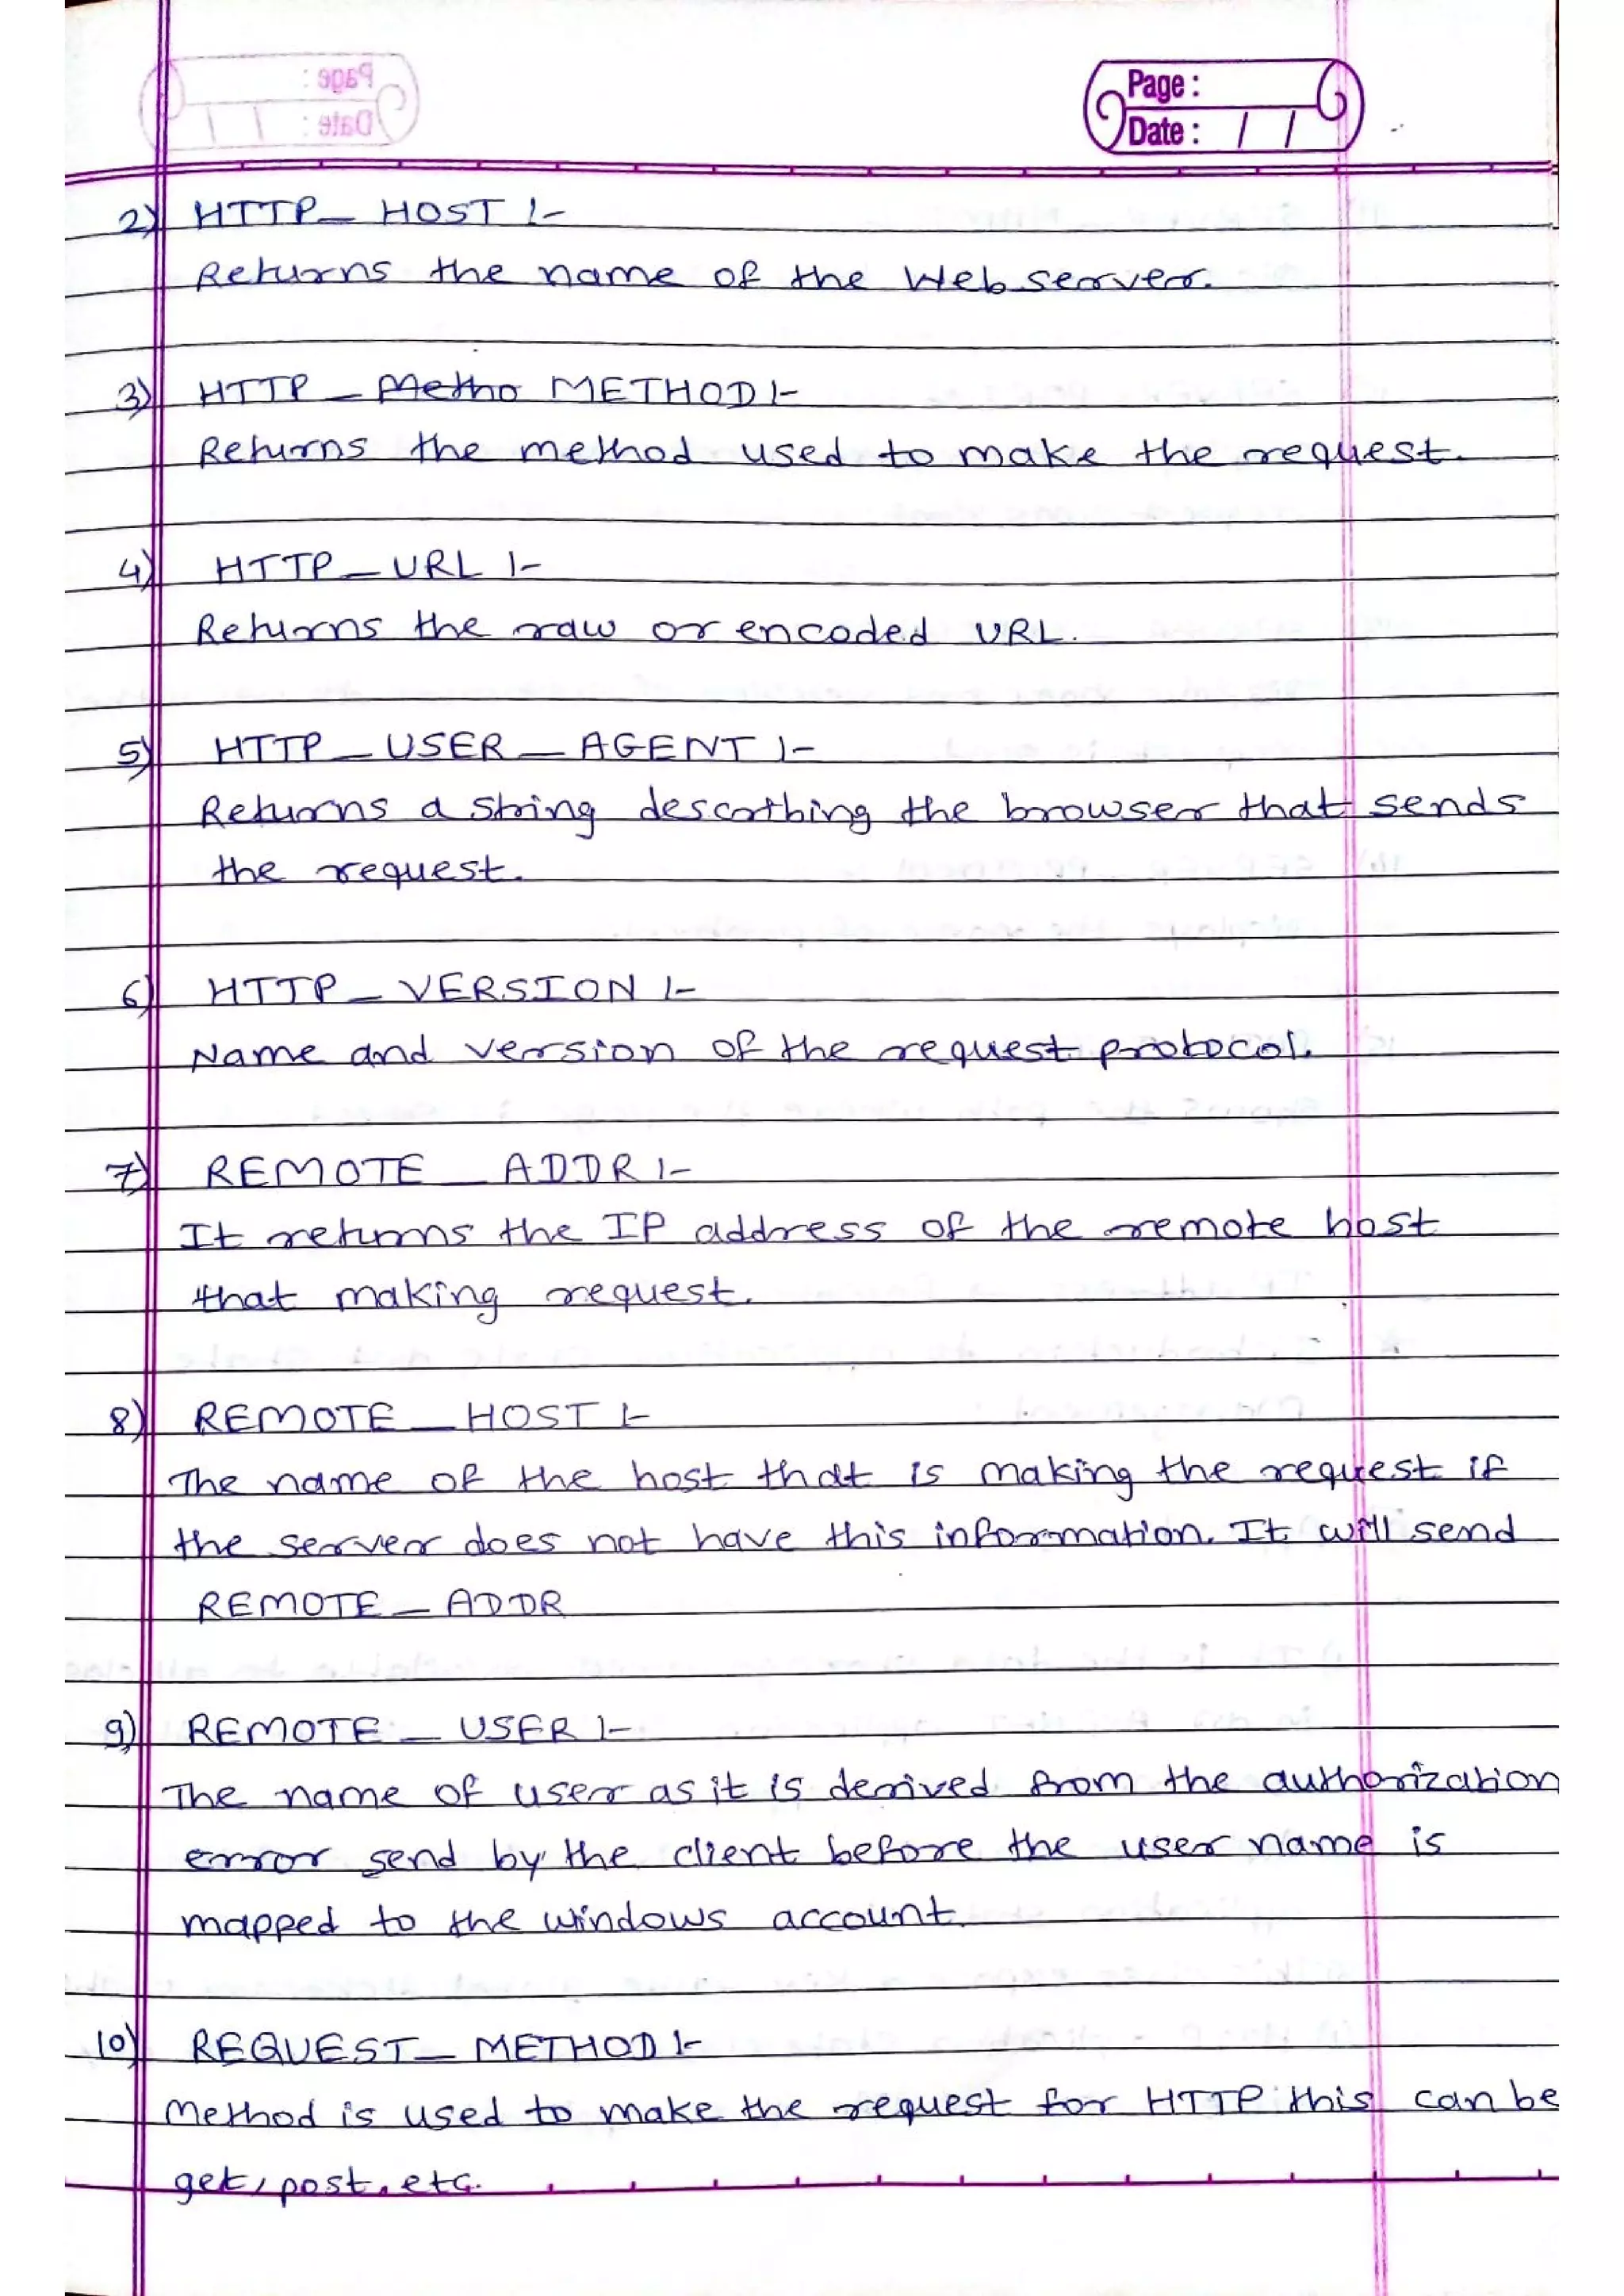 Page :
Date : / /
2) HTTP_ HOST :-
Returns the name of the Web server.
3) HTTP _ Metho METHOD :-
Returns the method used to make the request.
4) HTTP _ URL :-
Returns the raw or encoded URL.
5) HTTP _ USER _ AGENT :-
Returns a string describing the browser that sends
the request.
6) HTTP _ VERSION :-
Name and version of the request protocol.
7) REMOTE _ ADDR :-
It returns the IP address of the remote host
that making request.
8) REMOTE _ HOST :-
The name of the host that is making the request if
the server does not have this information. It will send
REMOTE _ ADDR
9) REMOTE _ USER :-
The name of user as it is derived from the authorization
error send by the client before the user name is
mapped to the windows account.
10) REQUEST _ METHOD :-
Method is used to make the request for HTTP this can be
get, post, etc.